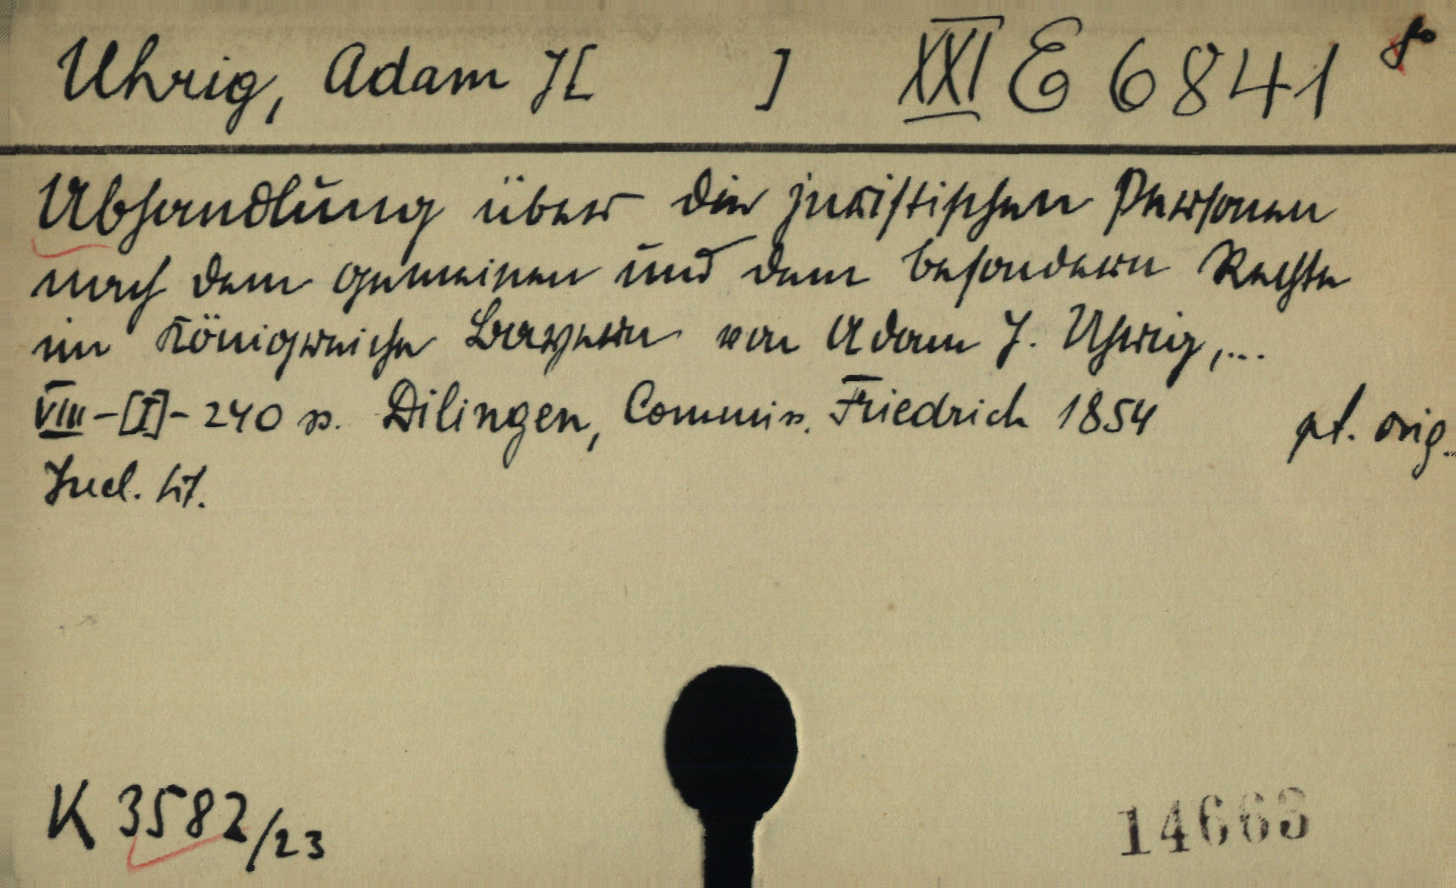 Uhrig, Adam J[ ] XXI E 6841 8°
Abhandlung über die juristischen Personen
nach dem gemeinen und dem besondern Rechte
im Königreiche Bayern von Adam J. Uhrig,...
VIII-[I]-240 p. Dilingen, Commis. Friedrich 1854 pt. orig..
Incl. lit.
K 3582/23
14663